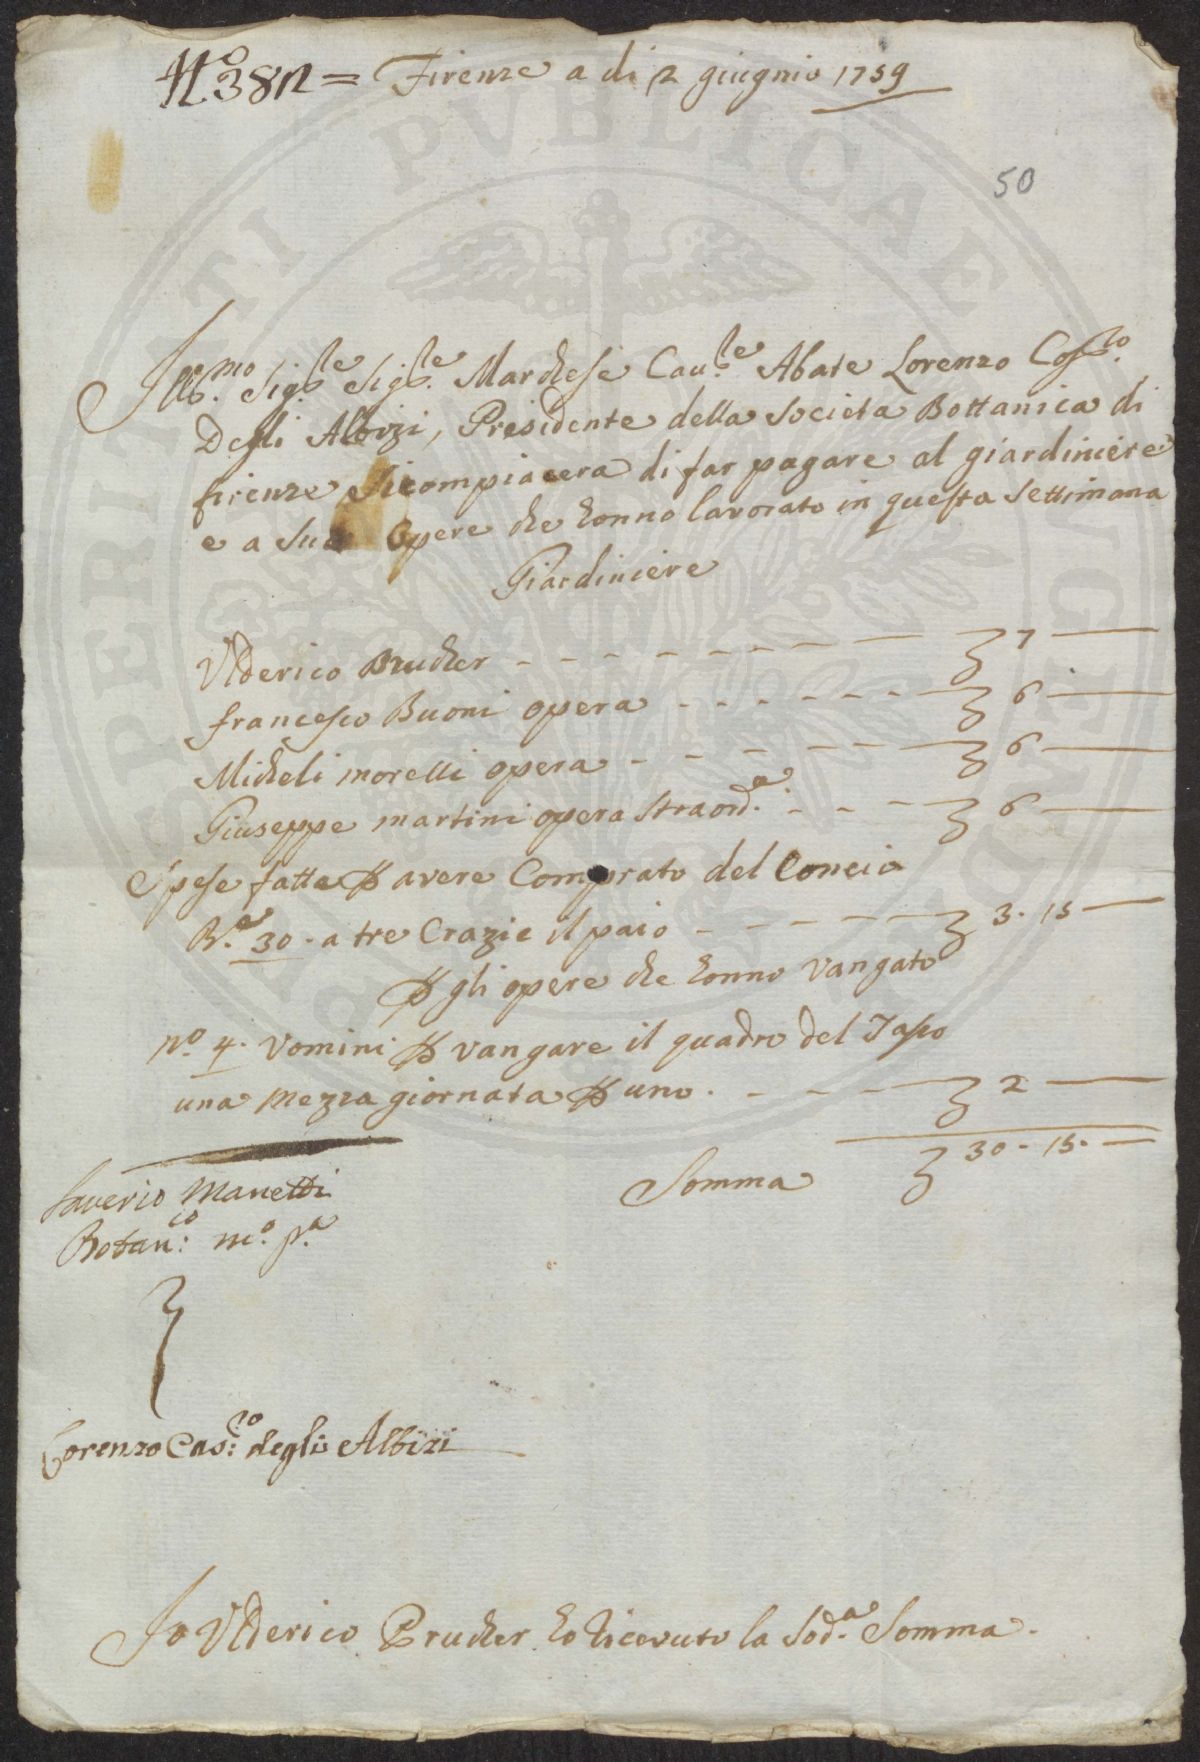 N.º 382 = Firenze a di 2 giugnio 1759
50
Ill.mo Sig.re Sig.re Marchese Cau.re Abate Lorenzo Cas.co
Degli Albizi, Presidente della Societa Bottanica di
firenze si compiacera di far pagare al giardiniere
e a sue opere che honno lavorato in questa settimana
Giardiniere
Ulderico Brucher - - - - - - - - - 7 —
francesco Buoni opera - - - - - - 6 —
Micheli morelli opera - - - - - - 6 —
Giuseppe martini opera straord.a - - - 6 —
Spese fatte p avere Comprato del Concio
B.e 30 · a tre Crazie il paio - - - - - 3 · 15 —
p gli opere che honno vangato
n.º 4 · Vomini p vangare il quadro del Tasso
una mezza giornata p uno · - - - - 2 —
Somma 30 · 15 · —
Saverio Manetti
Botan:co m.º p.a
Lorenzo Cas:co degli Albizi
Io Ulderico Prucher ho ricevuto la Sod.a Somma ·
PROSPERITATI PVBLICAE AVGENDAE